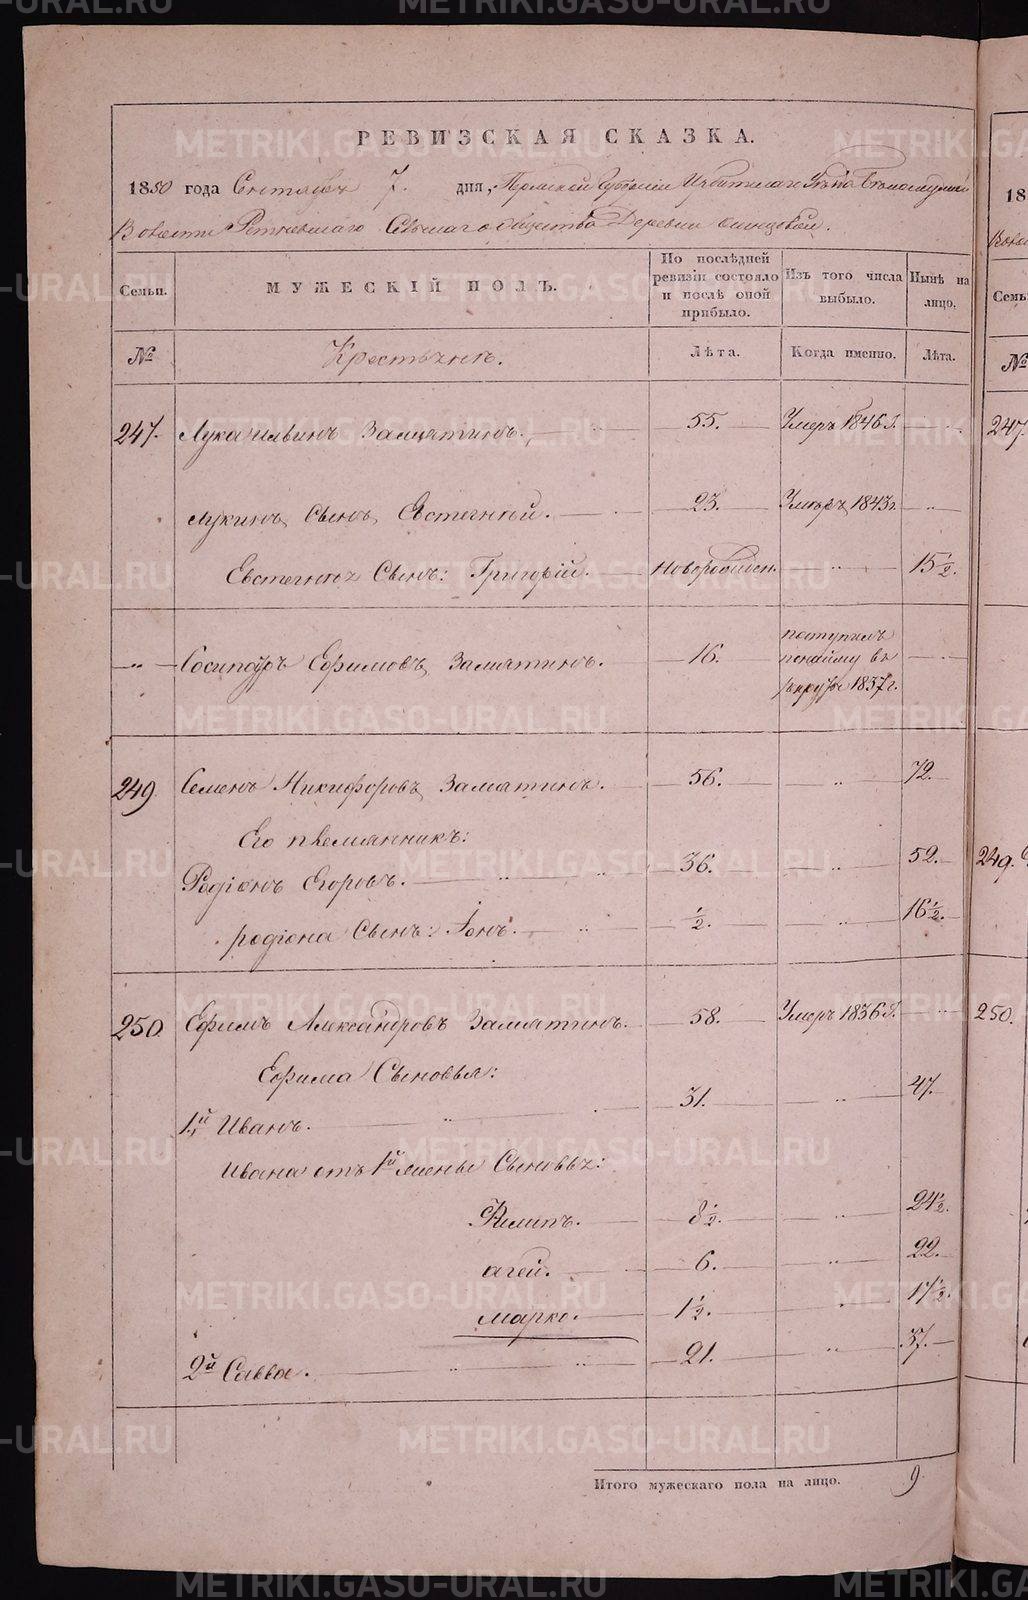 РЕВИЗСКАЯ СКАЗКА.
1850 года Сентября 7. дня, Пермской Губернии Ирбитскаго Уезда
Волости Ретневскаго Сельскаго общества Деревни
Семьи. МУЖЕСКІЙ ПОЛЪ. По послѣдней ревизіи состояло и послѣ оной прибыло. Изъ того числа выбыло. Нынѣ на лицо.
№ Крестьянъ. Лѣта. Когда именно. Лѣта.
247. Лука Ильинъ Замятинъ. 55. Умеръ 1846 г.
Лукинъ Сынъ, Евстегней. 23. Умеръ 1843 г.
Евстегнея Сынъ: Григорій. Новорожден. 15½.
Сосипатръ Ефимовъ Замятинъ. 16. поступилъ въ рекруты 1837 г.
249. Семенъ Никифоровъ Замятинъ. 56. 72.
Его племянникъ:
Родіонъ Егоровъ. 36. 52.
родіона Сынъ: Іонъ. ½. 16½.
250. Ефимъ Александровъ Замятинъ. 58. Умеръ 1836 г.
Ефима Сыновья:
1й Иванъ. 31. 47.
Ивана отъ 1й жены Сыновья:
Филипъ. 8½. 24½.
агей. 6. 22.
марко. 1½. 17½.
2й Савва. 21. 37.
Итого мужескаго пола на лицо. 9
18
№
Семьи
247.
249.
250.
METRIKI.GASO-URAL.RU